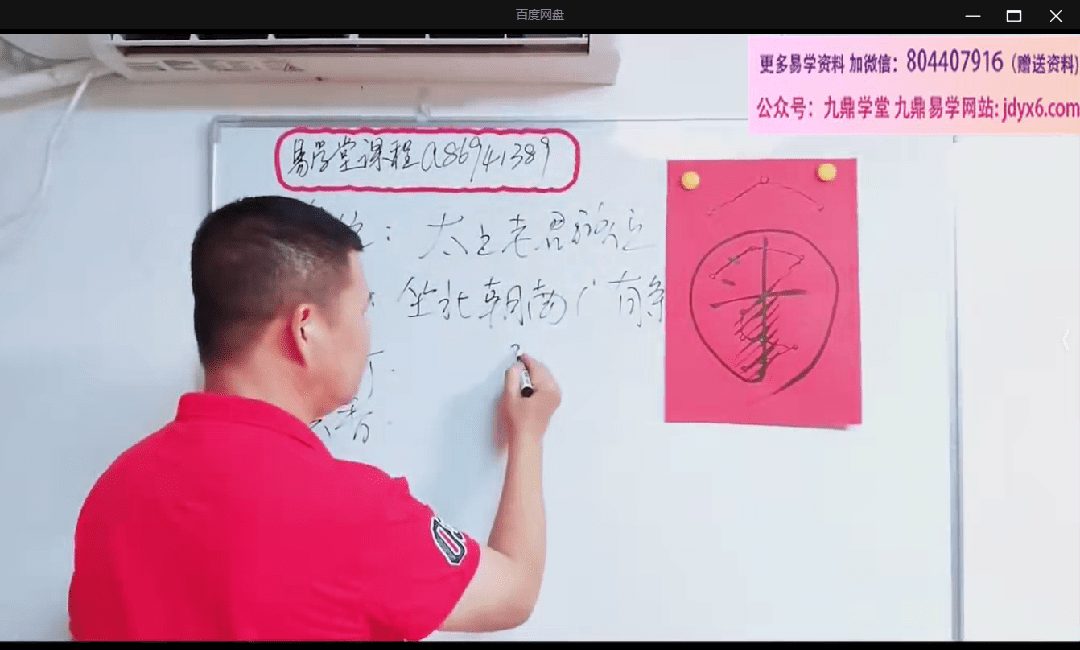 百度网盘
更多易学资料 加微信：804407916（赠送资料)
公众号：九鼎学堂 九鼎易学网站: jdyx6.com
易学堂课程 a86941389
：太上老君
坐北朝南 有
丁